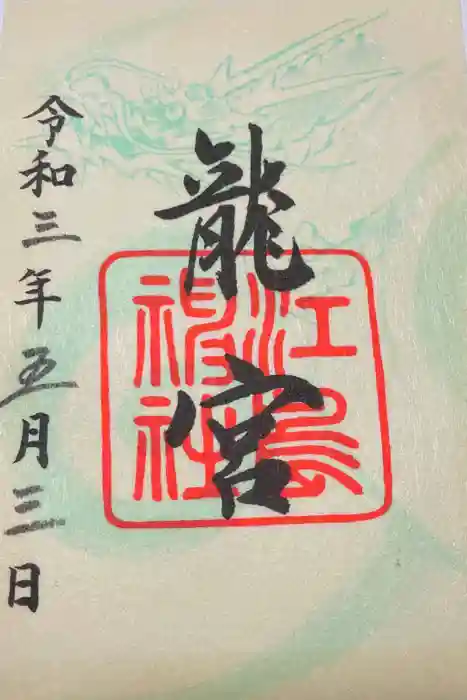 龍宮
江島神社
令和三年五月三日